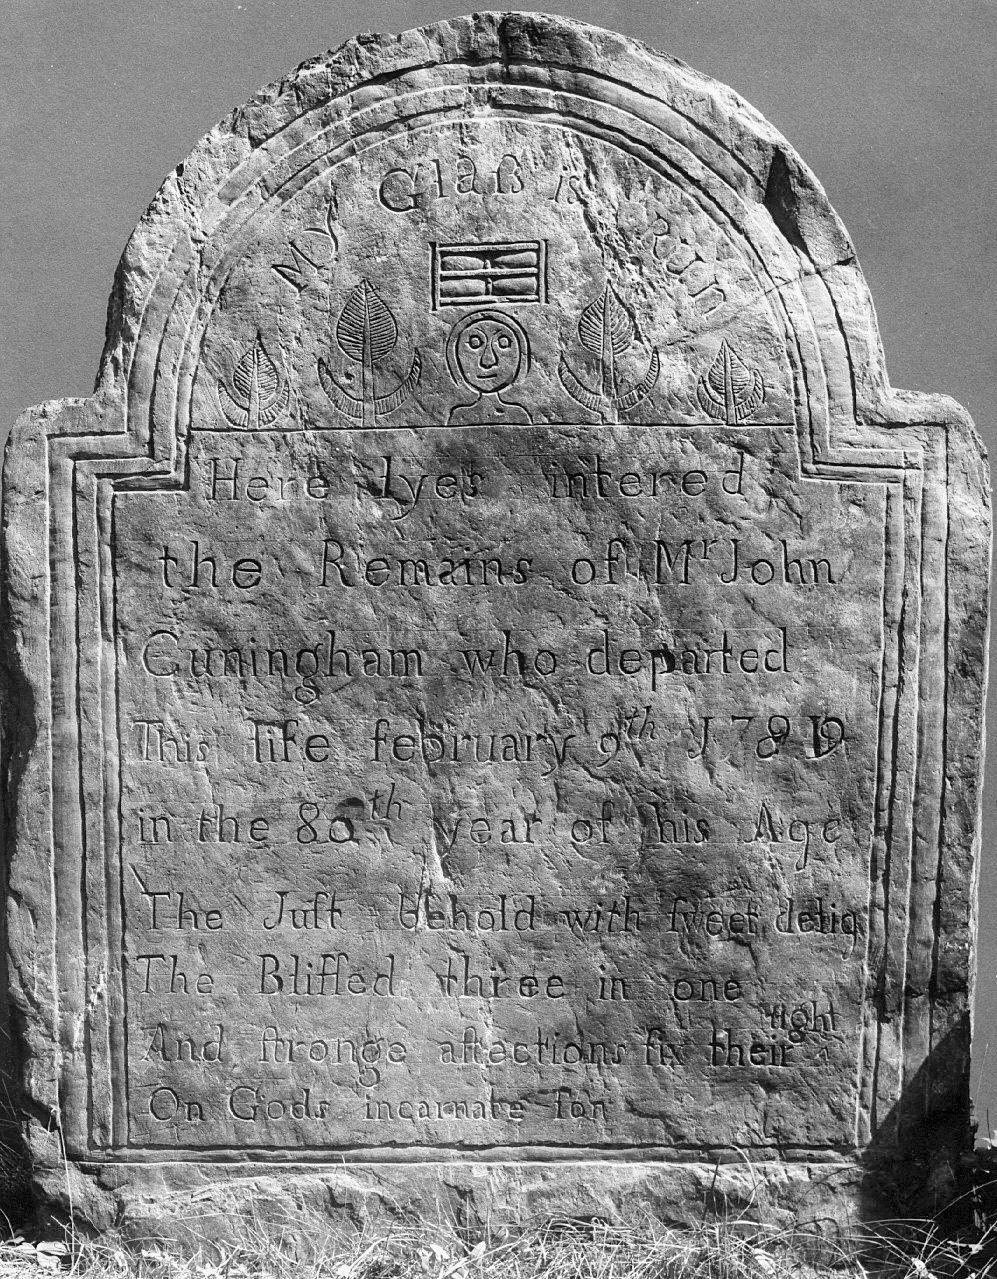 My Glaß is Run
Here lyes intered
the Remains of Mr John
Cuningham who departed
This life february 9th 1789 D
in the 80th year of his Age
The Juſt behold with ſweet deliq
The Bliſſed three in one
And ſtronge affections fix their ſight
On Gods incarnate ſon